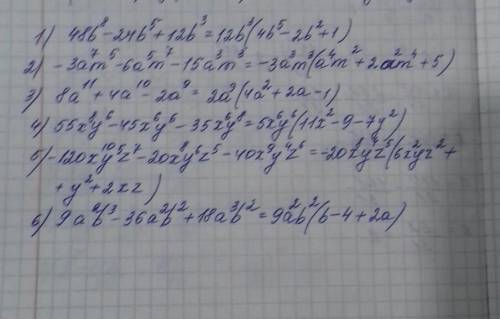 1) 48b⁸-24b⁵+12b³=12b³(4b⁵-2b²+1)
2) -3a⁷m⁵-6a⁵m⁷-15a³m³=-3a³m³(a⁴m²+2a²m⁴+5)
3) 8a¹¹+4a¹⁰-2a⁹=2a⁹(4a²+2a-1)
4) 55x⁸y⁶-45x⁶y⁶-35x⁶y⁸=5x⁶y⁶(11x²-9-7y²)
5) -120x¹⁰y⁵z⁷-20x⁸y⁶z⁵-40x⁹y⁴z⁶=-20x⁸y⁴z⁵(6x²yz²+
+y²+2xz)